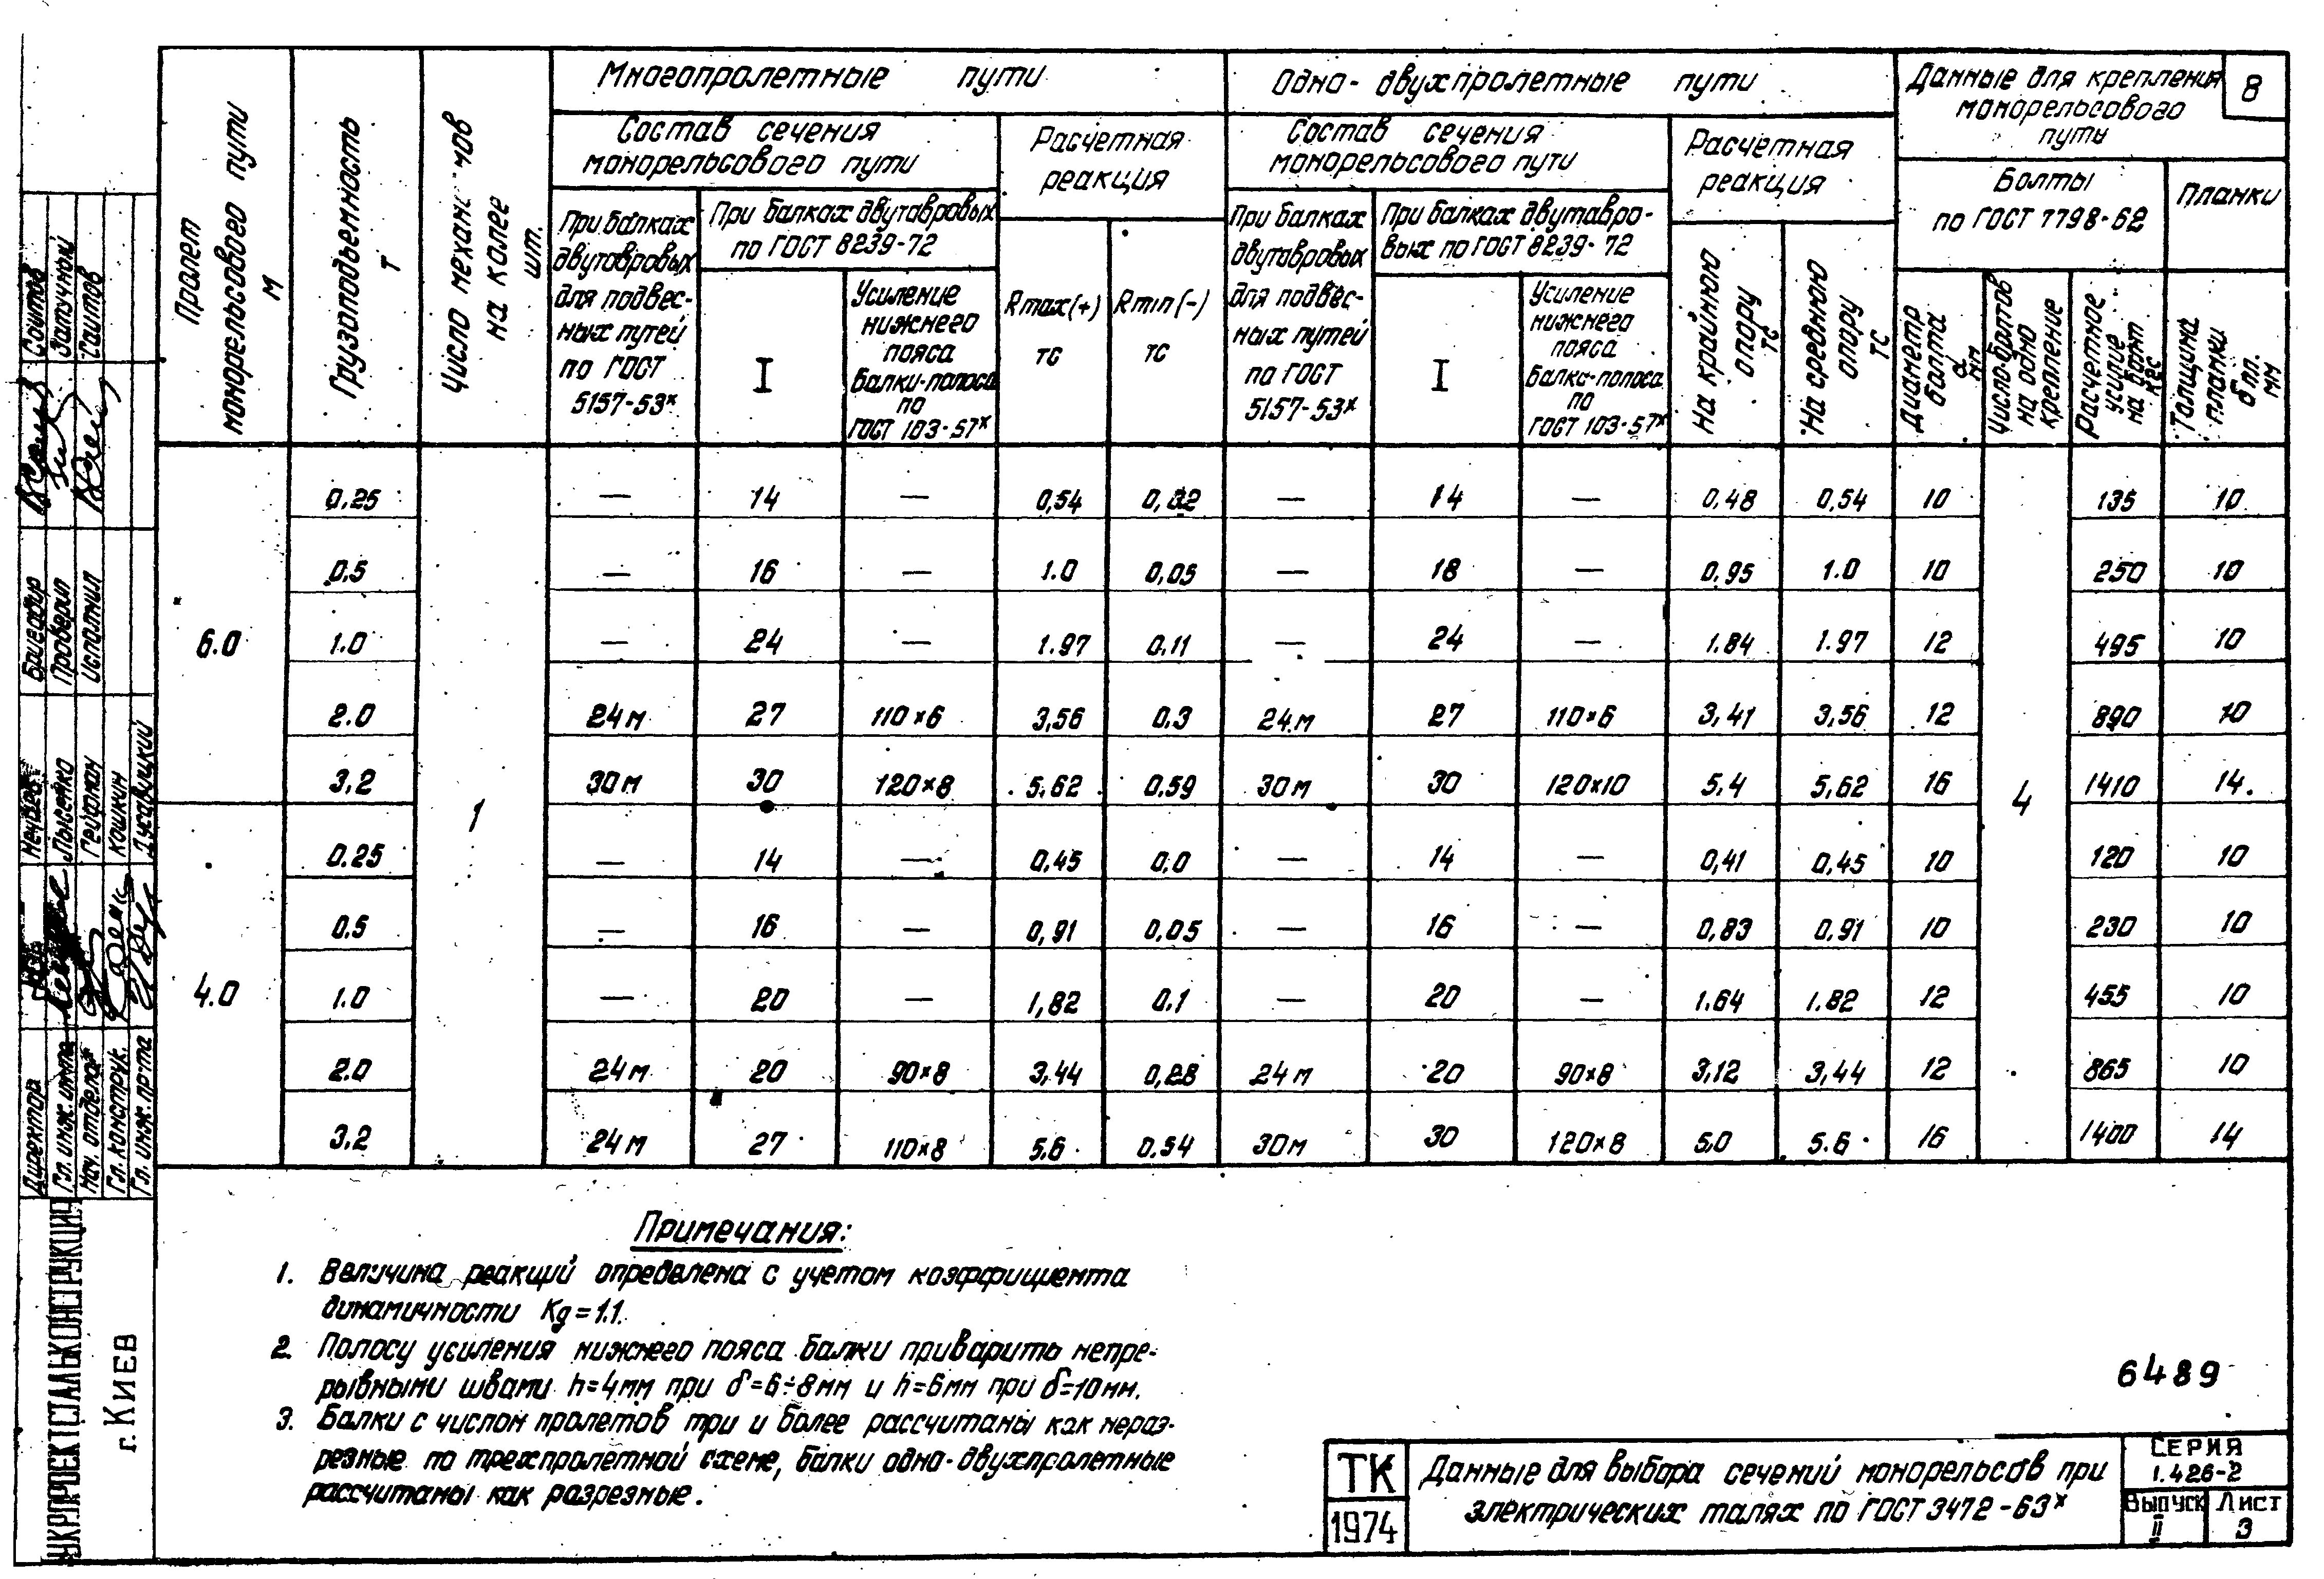 8
Многопролетные пути
Одно- двухпролетные пути
Данные для крепления
монорельсового
пути
Пролет
монорельсового пути
м
Грузоподъемность
т
на колее
шт.
Состав сечения
монорельсового пути
Расчетная
реакция
Состав сечения
монорельсового пути
Расчетная
реакция
Болты
по ГОСТ 7798-62
Планки
При балках
двутавровых
для подвес-
ных путей
по ГОСТ
5157-53*
При балках двутавровых
по ГОСТ 8239-72
I
Усиление
нижнего
пояса
балки-полоса
по
ГОСТ 103-57*
Rmax(+)
тс
Rmin(-)
тс
При балках
двутавровых
для подвес-
ных путей
по ГОСТ
5157-53*
При балках двутавро-
вых по ГОСТ 8239-72
I
Усиление
нижнего
пояса
балки-полоса
по
ГОСТ 103-57*
На крайнюю
опору
тс
На среднюю
опору
тс
Диаметр
болта
d
мм
Число болтов
на одно
крепление
Расчетное
усилие
на болт
кгс
Толщина
планки
δпл.
мм
6.0
1
4
0.25 — 14 — 0,54 — 14 — 0,48 0,54 10 135 10
0,5 — 16 — 1.0 0,05 — 18 — 0,95 1.0 10 250 10
1.0 — 24 — 1.97 0.11 — 24 — 1.84 1.97 12 495 10
2.0 24м 27 110×6 3,56 0.3 24м 27 110×6 3,41 3,56 12 890 10
3,2 30м 30 120×8 5.62 0.59 30м 30 120×10 5.4 5,62 16 1410 14
4.0
0.25 — 14 — 0,45 0,0 — 14 — 0,41 0,45 10 120 10
0.5 — 16 — 0,91 0,05 — 16 — 0,83 0.91 10 230 10
1.0 — 20 — 1,82 0.1 — 20 — 1.64 1.82 12 455 10
2.0 24м 20 90×8 3,44 0,28 24м 20 90×8 3,12 3,44 12 865 10
3.2 24м 27 110×8 5.6 0.54 30м 30 120×8 5.0 5.6 16 1400 14
Примечания:
1. Величина реакций определена с учетом коэффициента
динамичности Кд=1.1.
2. Полосу усиления нижнего пояса балки приварить непре-
рывными швами h=4мм при δ=6÷8мм и h=6мм при δ=10мм.
3. Балки с числом пролетов три и более рассчитаны как нераз-
резные по трехпролетной схеме, балки одно-двухпролетные
рассчитаны как разрезные.
6489
ТК
1974
Данные для выбора сечений монорельсов при
электрических талях по ГОСТ 3472-63*
Серия
1.426-2
Выпуск
II
Лист
3
УКРПРОЕКТСТАЛЬКОНСТРУКЦИЯ
г. Киев
Директор
Гл. инж. инст-та Лысенко
Нач. отдела Гейфман
Гл. конструк. Кошкин
Гл. инж. пр-та
Бригадир Саитов
Проверил
Исполнил Саитов